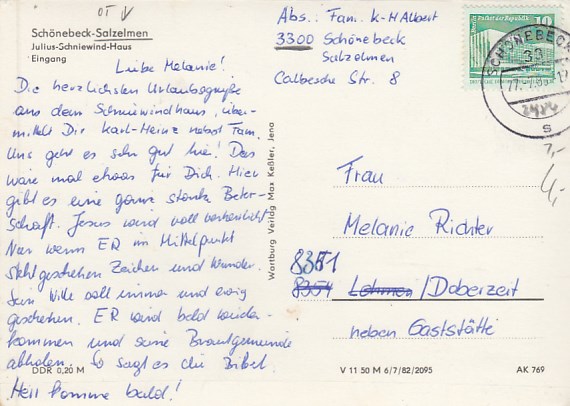 OT V
Schönebeck-Salzelmen
Julius-Schniewind-Haus
Eingang
Liebe Melanie!
Die herzlichsten Urlaubsgrüße
aus dem Schniewindhaus, über-
mittelt Dir Karl-Heinz nebst Fam.
Uns geht es sehr gut hie! Das
wäre mal etwas für Dich. Hier
gibt es eine ganz starke Beter-
schaft. Jesus wird voll verherrlicht
Nur wenn ER im Mittelpunkt
steht geschehen Zeichen und Wunder.
Sein Wille soll immer und ewig
geschehen. ER wird bald wieder-
kommen und seine Brautgemeinde
abholen. So sagt es die Bibel.
"Herr komme bald!
DDR 0,20 M
Wartburg Verlag Max Keßler, Jena
Abs.: Fam. K-H Albert
3300 Schönebeck
Salzelmen
Calbesche Str. 8
Palast der Republik 10
SCHÖNEBECK
33
s
Frau
Melanie Richter
8351
8354 Lohmen/Doberzeit
neben Gaststätte
V 11 50 M 6/7/82/2095
AK 769